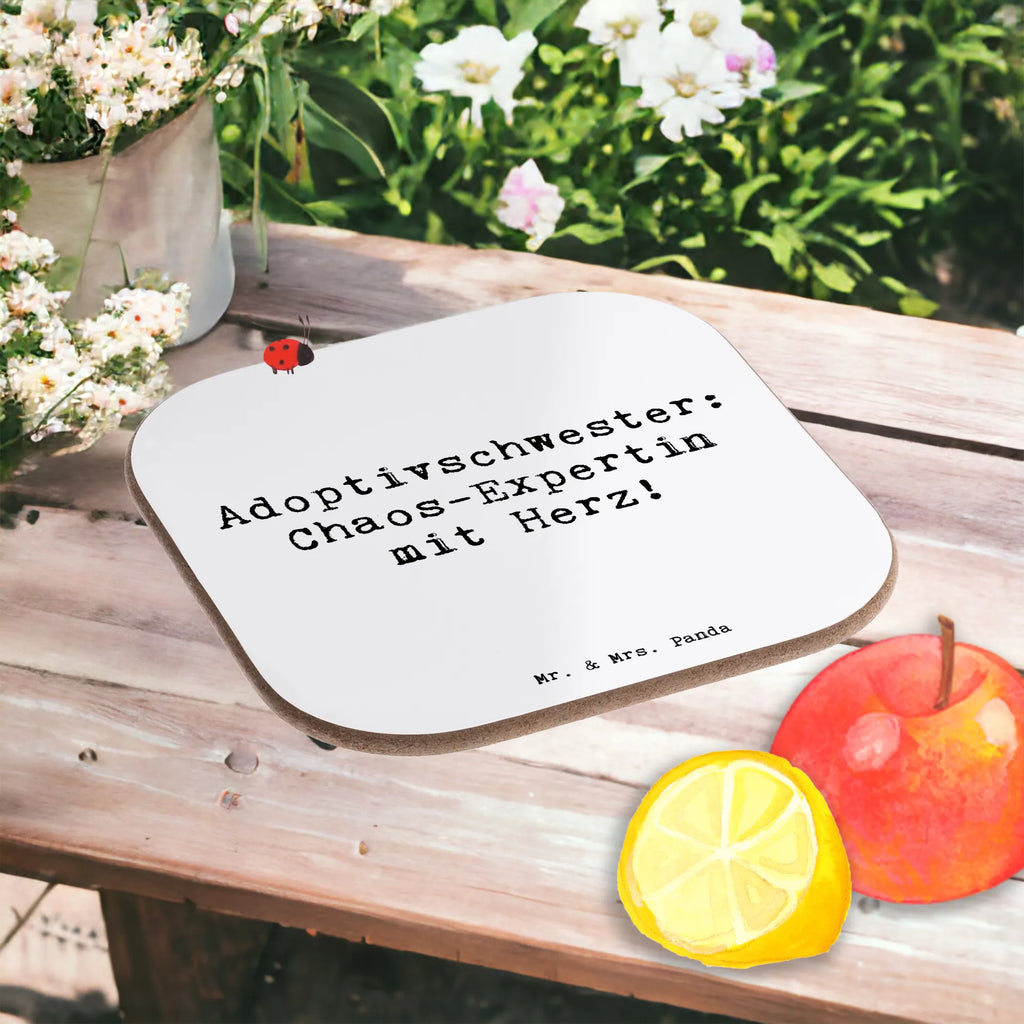 Adoptivschwester:
Chaos-Expertin
mit Herz!
Mr. & Mrs. Panda